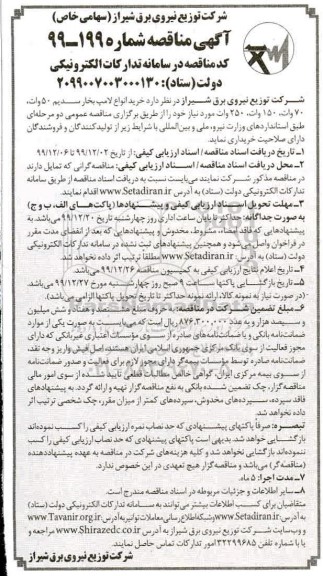 شرکت توزیع نیروی برق شیراز (سهامی خاص)
آگهی مناقصه شماره ۱۹۹-۹۹
کد مناقصه در سامانه تدارکات الکترونیکی
دولت (ستاد): ۲۰۹۹۰۰۷۰۰۳۰۰۰۱۳۰
شرکت توزیع نیروی برق شیراز در نظر دارد خرید انواع لامپ بخار سدیم ۵۰ وات،
۷۰ وات، ۱۵۰ وات، ۲۵۰ وات مورد نیاز خود را از طریق برگزاری مناقصه عمومی دو مرحله‌ای
طبق استانداردهای وزارت نیرو، ملی و بین‌المللی با شرایط زیر از تولیدکنندگان و فروشندگان
دارای صلاحیت خریداری نماید.
۱ـ تاریخ دریافت اسناد مناقصه/ اسناد ارزیابی کیفی: از تاریخ ۹۹/۱۲/۰۲ تا ۹۹/۱۲/۰۶
۲ـ محل دریافت اسناد مناقصه/ اسناد ارزیابی کیفی: مناقصه‌گرانی که تمایل دارند
در مناقصه مذکور شرکت نمایند می‌بایست نسبت به دریافت اسناد مناقصه از طریق سامانه
تدارکات الکترونیکی دولت (ستاد) به آدرس www.Setadiran.ir اقدام نمایند.
۳ـ مهلت تحویل اسناد ارزیابی کیفی و پیشنهادها (پاکت‌های الف، ب و ج)
به صورت جداگانه: حداکثر تا پایان ساعت اداری روز چهارشنبه تاریخ ۹۹/۱۲/۲۰ می‌باشد. به
پیشنهادهایی که فاقد امضاء، مشروط، مخدوش و پیشنهادهایی که بعد از انقضای مدت مقرر
در فراخوان واصل می‌شود و همچنین پیشنهادهای ثبت نشده در سامانه تدارکات الکترونیکی
دولت (ستاد) به آدرس www.Setadiran.ir مطلقا ترتیب اثر داده نخواهد شد.
۴ـ تاریخ اعلام نتایج ارزیابی کیفی به کمیسیون مناقصه ۹۹/۱۲/۲۶ می‌باشد.
۵ـ تاریخ بازگشایی پاکتها ساعت ۹ صبح روز چهارشنبه مورخ ۹۹/۱۲/۲۷ می‌باشد.
(در صورت نیاز به نمونه کالا، ارائه نمونه حداکثر تا تاریخ تحویل پاکتها الزامی می‌باشد).
۶ـ مبلغ تضمین شرکت در مناقصه: به حروف مبلغ هشتصد و هفتاد و شش میلیون
و سیصد هزار و به عدد ۸۷۶,۳۰۰,۰۰۰ ریال است که می‌بایست به صورت یکی از موارد
ضمانت‌نامه بانکی و یا ضمانت‌نامه‌های صادره از سوی مؤسسات اعتباری غیربانکی که دارای
مجوز فعالیت از سوی بانک مرکزی جمهوری اسلامی ایران هستند، اصل فیش واریز وجه نقد،
ضمانت‌نامه صادره توسط مؤسسات بیمه‌گر دارای مجوز لازم برای فعالیت و صدور ضمانت‌نامه
از سوی بیمه مرکزی ایران، گواهی خالص مطالبات قطعی تأیید شده از سوی امور مالی
مناقصه‌گزار، چک تضمین شده بانکی به نفع مناقصه‌گزار تهیه و ارائه گردد. به پیشنهادهای
فاقد سپرده، سپرده‌های مخدوش، سپرده‌های کمتر از میزان مقرر، چک شخصی ترتیب اثر
داده نخواهد شد.
تبصره: صرفاً پاکتهای پیشنهادی که حد نصاب نمره ارزیابی کیفی را کسب نموده‌اند
بازگشایی خواهد شد. بدیهی است پاکتهای پیشنهادی که حد نصاب ارزیابی کیفی را کسب
ننموده‌اند بازگشایی نخواهد شد و کلیه هزینه‌های شرکت در مناقصه به عهده پیشنهاددهنده
(مناقصه‌گر) می‌باشد و مناقصه‌گزار هیچ تعهدی در این خصوص ندارد.
۷ـ مدت اجرا: ۵ ماه.
۸ـ سایر اطلاعات و جزئیات مربوطه در اسناد مناقصه مندرج است.
متقاضیان برای کسب اطلاعات بیشتر می‌توانند به سامانه تدارکات الکترونیکی دولت (ستاد)
به آدرس www.Setadiran.ir و شبکه اطلاع رسانی معاملات توانیر به آدرس www.Tavanir.org.ir
و وب‌سایت شرکت توزیع نیروی برق شیراز به آدرس www.Shirazedc.co.ir مراجعه و
یا با شماره تلفن ۳۲۲۹۹۶۸۵ امور تدارکات تماس حاصل نمایند.
شرکت توزیع نیروی برق شیراز